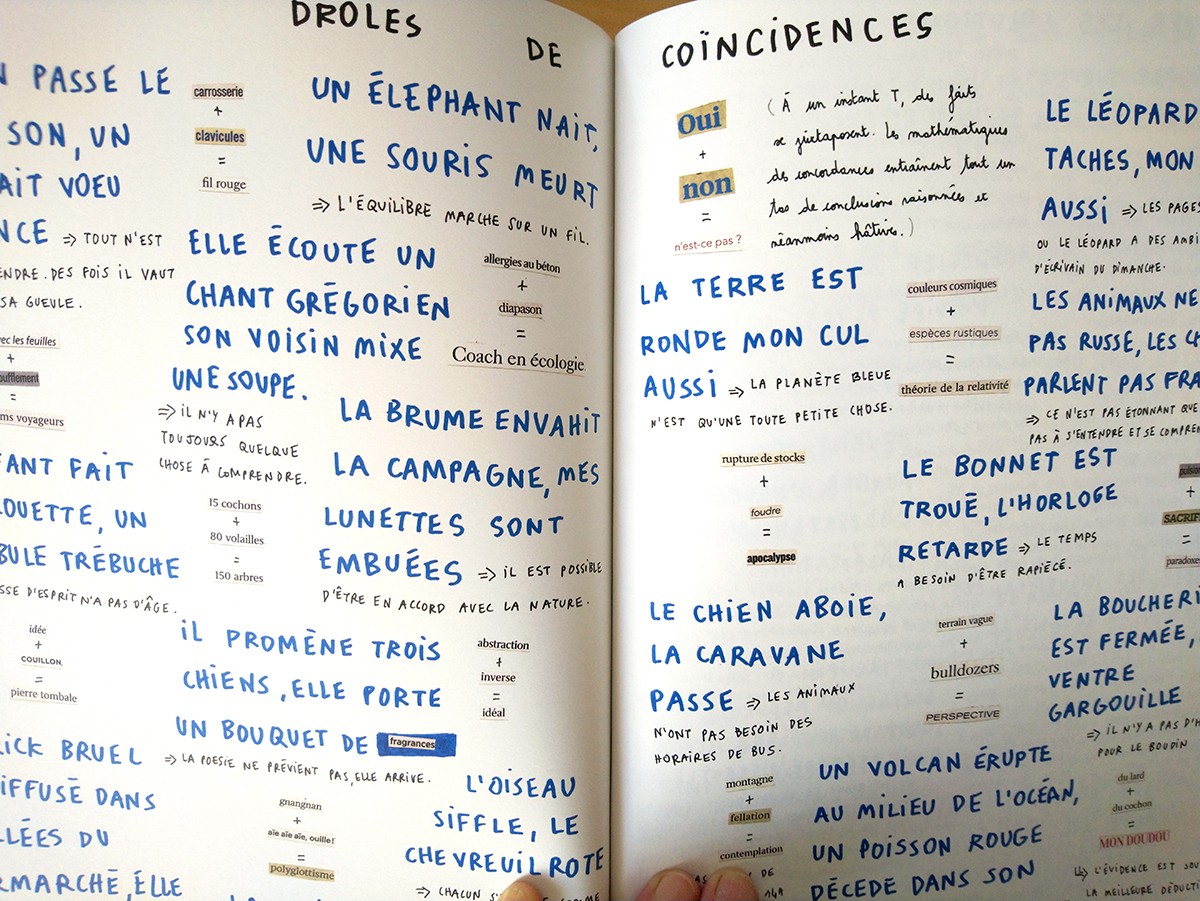 DROLES DE COÏNCIDENCES
PASSE LE
SON, UN
AIT VOEU
NCE ⇒ TOUT N'EST
ENDRE. DES FOIS IL VAUT
SA GUEULE.
carrosserie
+
clavicules
=
fil rouge
UN ÉLEPHANT NAIT,
UNE SOURIS MEURT
⇒ L'ÉQUILIBRE MARCHE SUR UN FIL.
ELLE ÉCOUTE UN
CHANT GRÉGORIEN
SON VOISIN MIXE
UNE SOUPE.
⇒ IL N'Y A PAS
TOUJOURS QUELQUE
CHOSE À COMPRENDRE.
allergies au béton
+
diapason
=
Coach en écologie
ec les feuilles
+
oufflement
=
ms voyageurs
LA BRUME ENVAHIT
LA CAMPAGNE, MES
LUNETTES SONT
EMBUÉES ⇒ IL EST POSSIBLE
D'ÊTRE EN ACCORD AVEC LA NATURE.
FANT FAIT
OUETTE, UN
BULE TRÉBUCHE
SSE D'ESPRIT N'A PAS D'ÂGE.
15 cochons
+
80 volailles
=
150 arbres
idée
+
COUILLON,
=
pierre tombale
IL PROMÈNE TROIS
CHIENS, ELLE PORTE
UN BOUQUET DE fragrances
⇒ LA POESIE NE PRÉVIENT PAS, ELLE ARRIVE.
abstraction
+
inverse
=
idéal
RICK BRUEL
IFFUSÉ DANS
LLÉES DU
RMARCHÉ, ELLE
gnangnan
+
aïe aïe aïe, ouille!
=
polyglottisme
L'OISEAU
SIFFLE, LE
CHEVREUIL ROTE
⇒ CHACUN
Oui
+
non
=
n'est-ce pas ?
(À un instant T, des faits
se juxtaposent. Les mathématiques
des concordances entraînent tout un
tas de conclusions raisonnées et
néanmoins hâtives.)
LE LÉOPARD
TACHES, MON
AUSSI ⇒ LES PAGES
OU LE LÉOPARD A DES AMBI
D'ÉCRIVAIN DU DIMANCHE.
LA TERRE EST
RONDE MON CUL
AUSSI ⇒ LA PLANÈTE BLEUE
N'EST QU'UNE TOUTE PETITE CHOSE.
couleurs cosmiques
+
espèces rustiques
=
théorie de la relativité
LES ANIMAUX NE
PAS RUSSE, LES CH
PARLENT PAS FRA
⇒ CE N'EST PAS ÉTONNANT QUE
PAS À S'ENTENDRE ET SE COMPREN
rupture de stocks
+
foudre
=
apocalypse
LE BONNET EST
TROUÉ, L'HORLOGE
RETARDE ⇒ LE TEMPS
A BESOIN D'ÊTRE RAPIÉCÉ.
+
SACRIF
=
paradoxes
LE CHIEN ABOIE,
LA CARAVANE
PASSE ⇒ LES ANIMAUX
N'ONT PAS BESOIN DES
HORAIRES DE BUS.
terrain vague
+
bulldozers
=
PERSPECTIVE
LA BOUCHERI
EST FERMÉE,
VENTRE
GARGOUILLE
⇒ IL N'Y A PAS D'H
POUR LE BOUDIN
montagne
+
fellation
=
contemplation
UN VOLCAN ÉRUPTE
AU MILIEU DE L'OCÉAN,
UN POISSON ROUGE
DÉCEDE DANS SON
du lard
+
du cochon
=
MON DOUDOU
⇒ L'ÉVIDENCE EST SOU
LA MEILLEURE DÉDUCTI